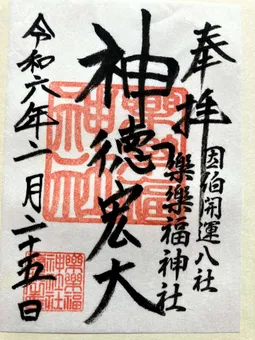 奉拝
因伯開運八社
樂樂福神社
神徳宏大
令和六年二月二十五日
樂樂福
神社